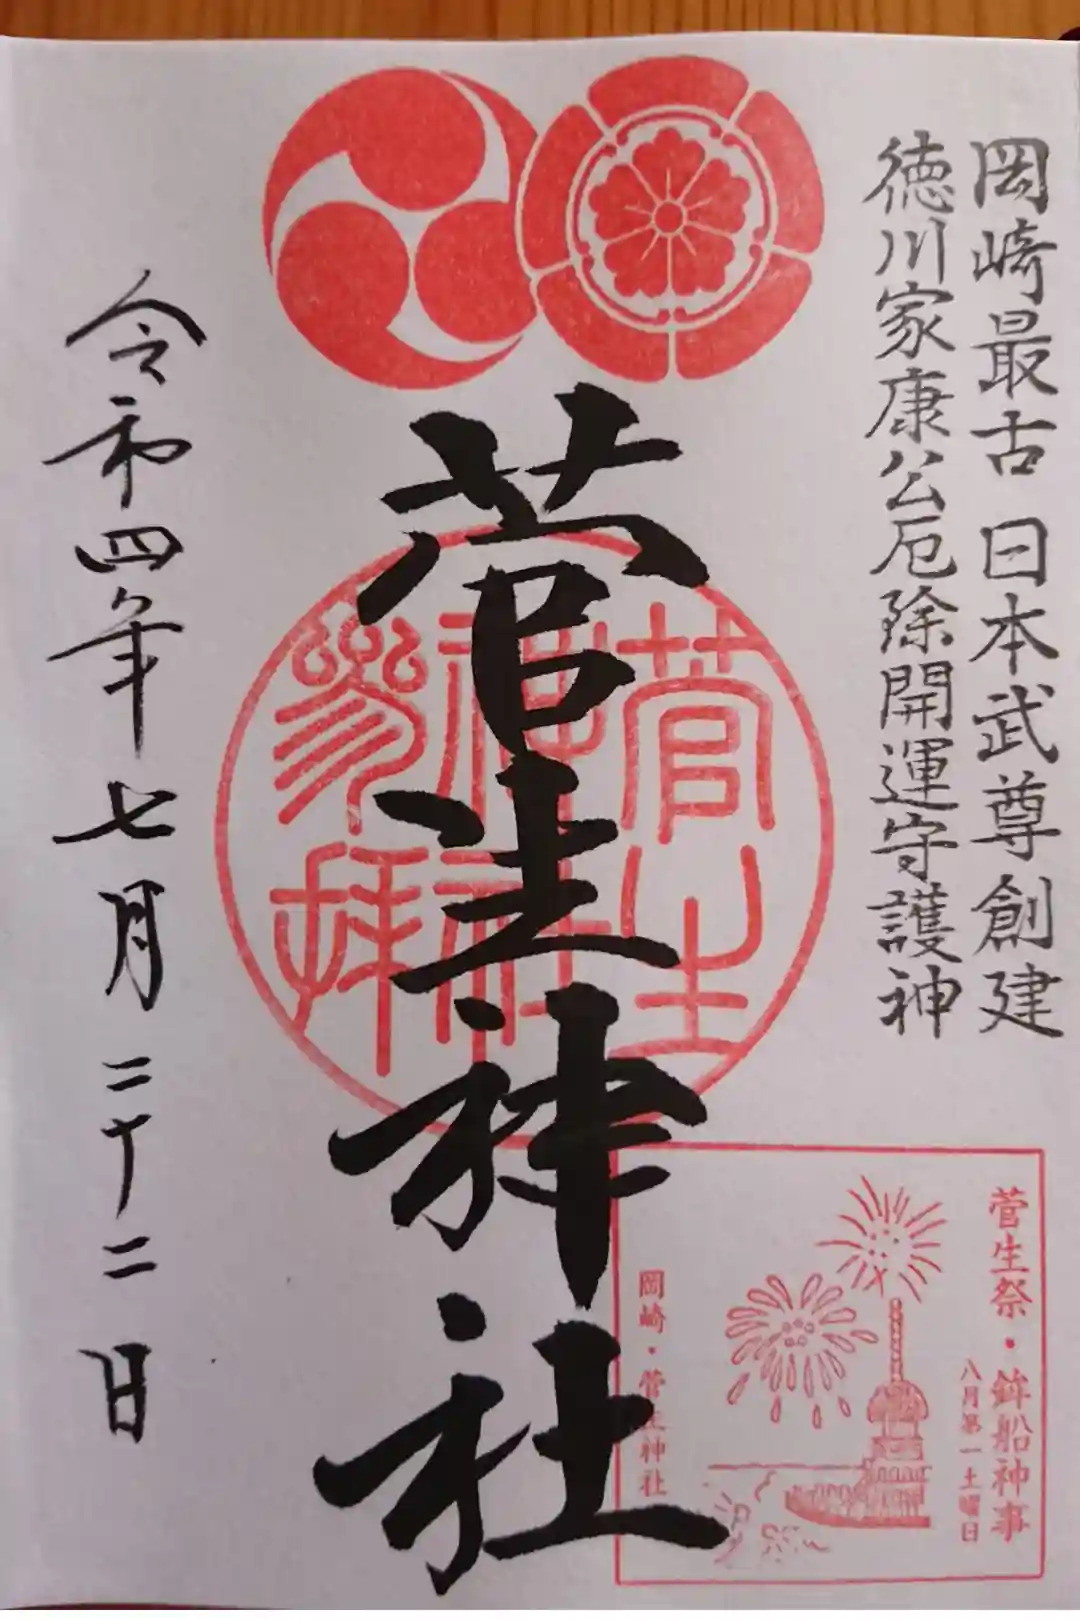 岡崎最古 日本武尊創建
徳川家康公厄除開運守護神
菅生神社
菅生
神社
参拝
菅生祭・鉾船神事
八月第一土曜日
岡崎・菅生神社
令和四年七月二十二日